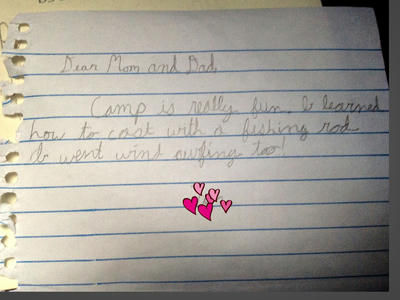 Dear Mom and Dad,
Camp is really fun. I learned
how to cast with a fishing rod
I went wind surfing too!